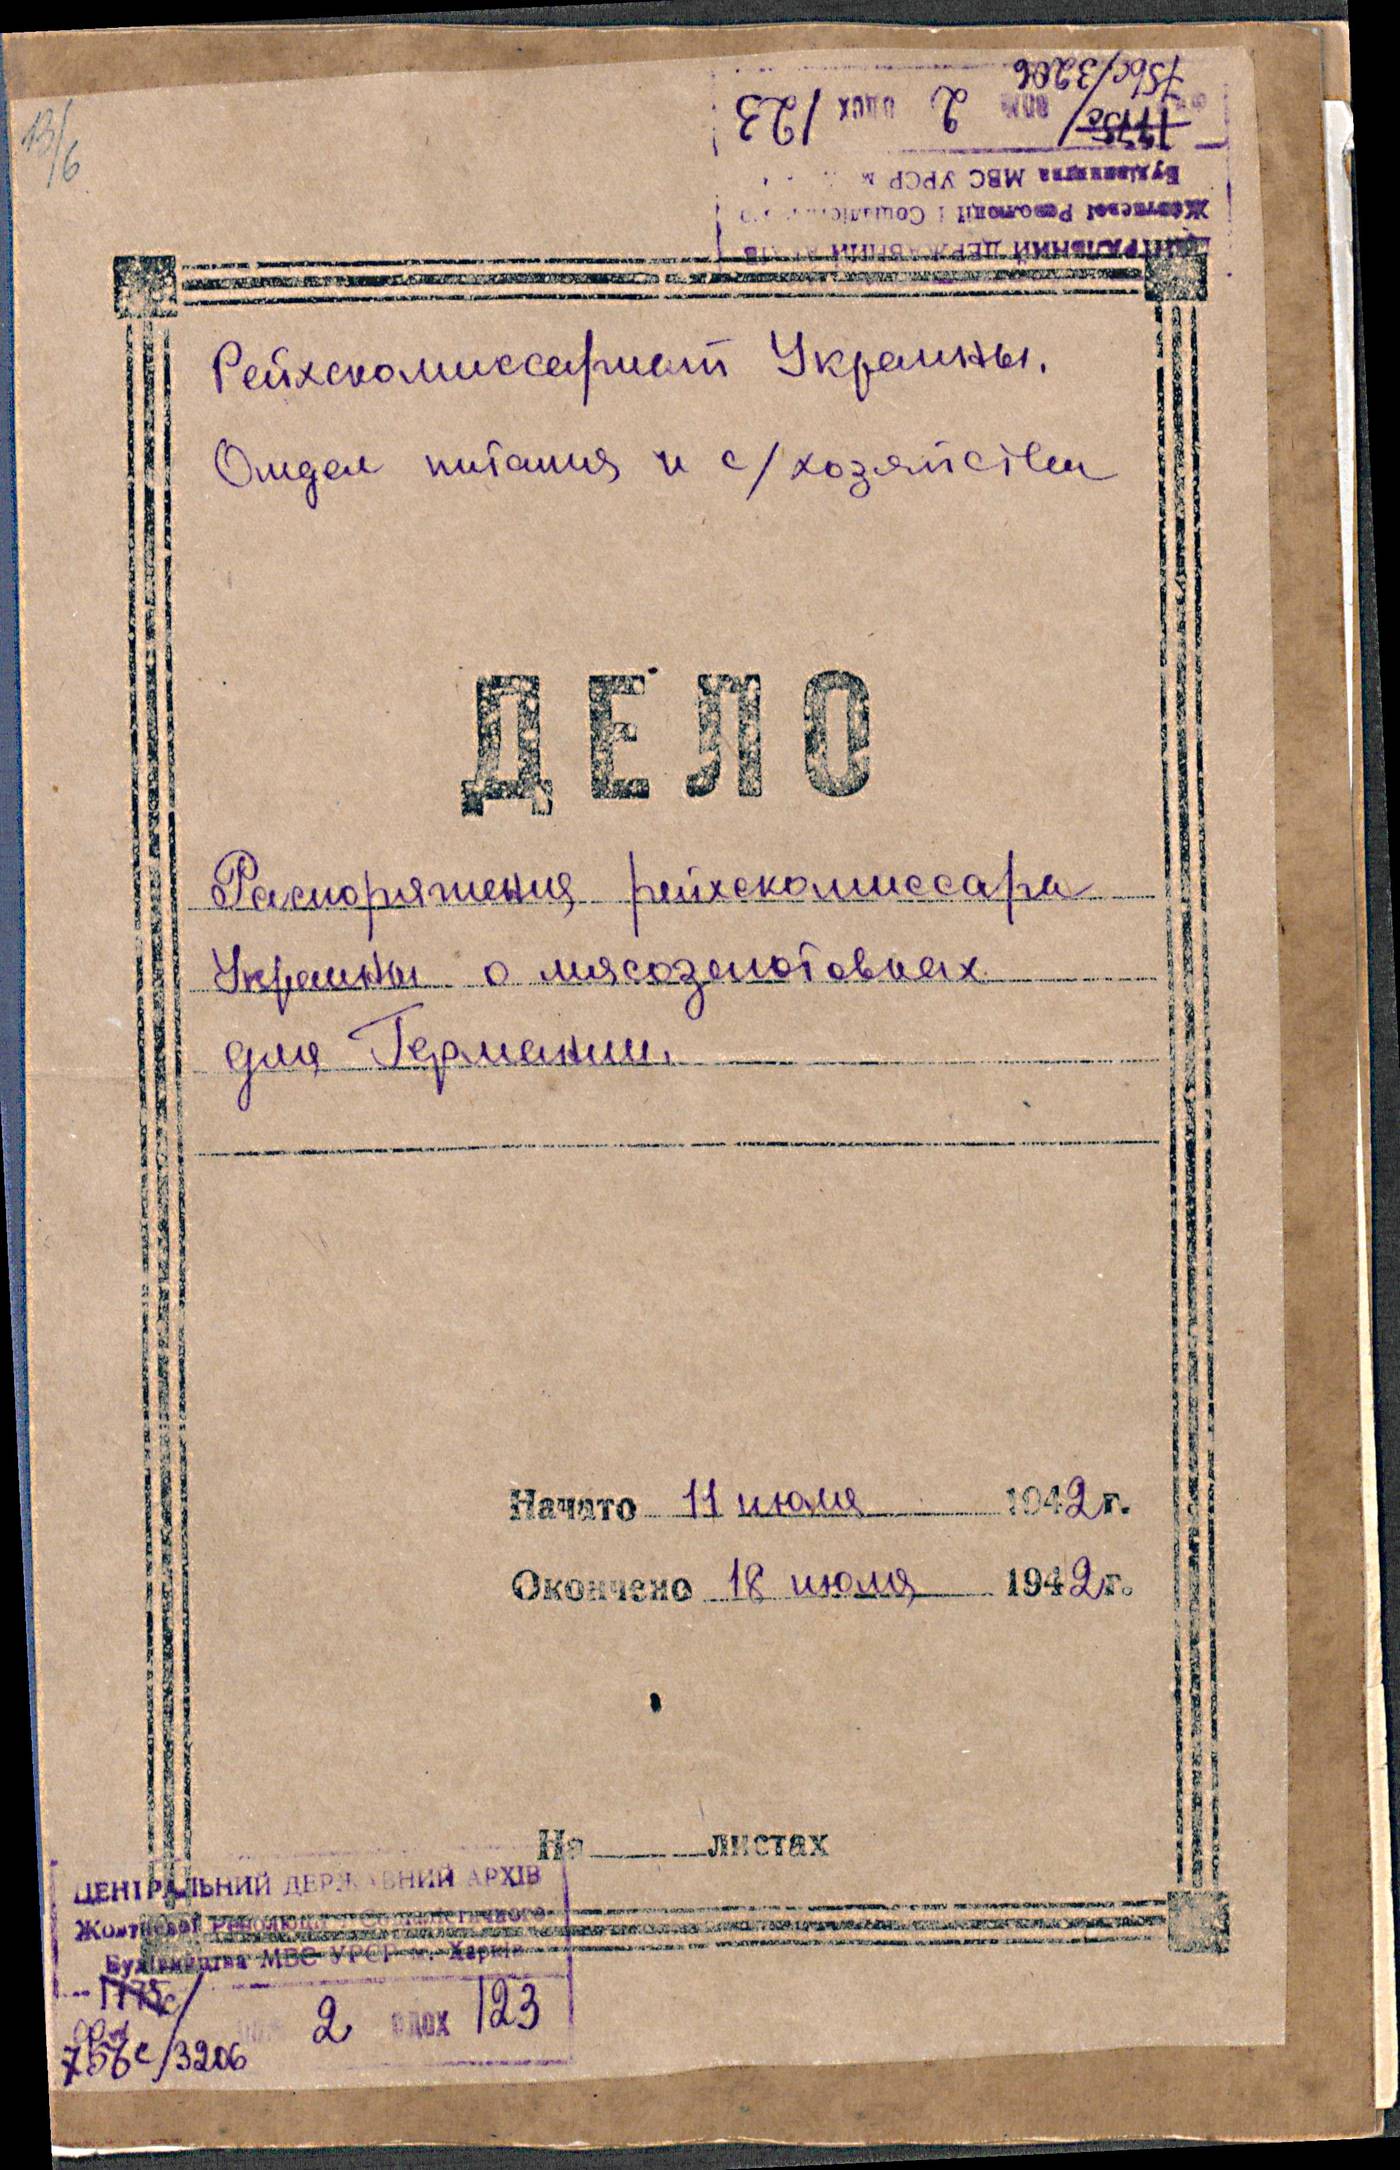 13/6
756с/3206
1775с/ 2 одох 123
Будівництва МВС УРСР м.
Жовтневої Революції і Соціалістичного
ЦЕНТРАЛЬНИЙ ДЕРЖАВНИЙ АРХІВ
Рейхскомиссариат Украины.
Отдел питания и с/хозяйства
ДЕЛО
Распоряжения рейхскомиссара
Украины о мясозаготовках
для Германии.
Начато 11 июля 1942 г.
Окончено 18 июля 1942 г.
На листах
ЦЕНТРАЛЬНИЙ ДЕРЖАВНИЙ АРХІВ
Жовтневої Революції і Соціалістичного
Будівництва МВС УРСР м. Харків
1775с/
2 одох 123
756с/3206